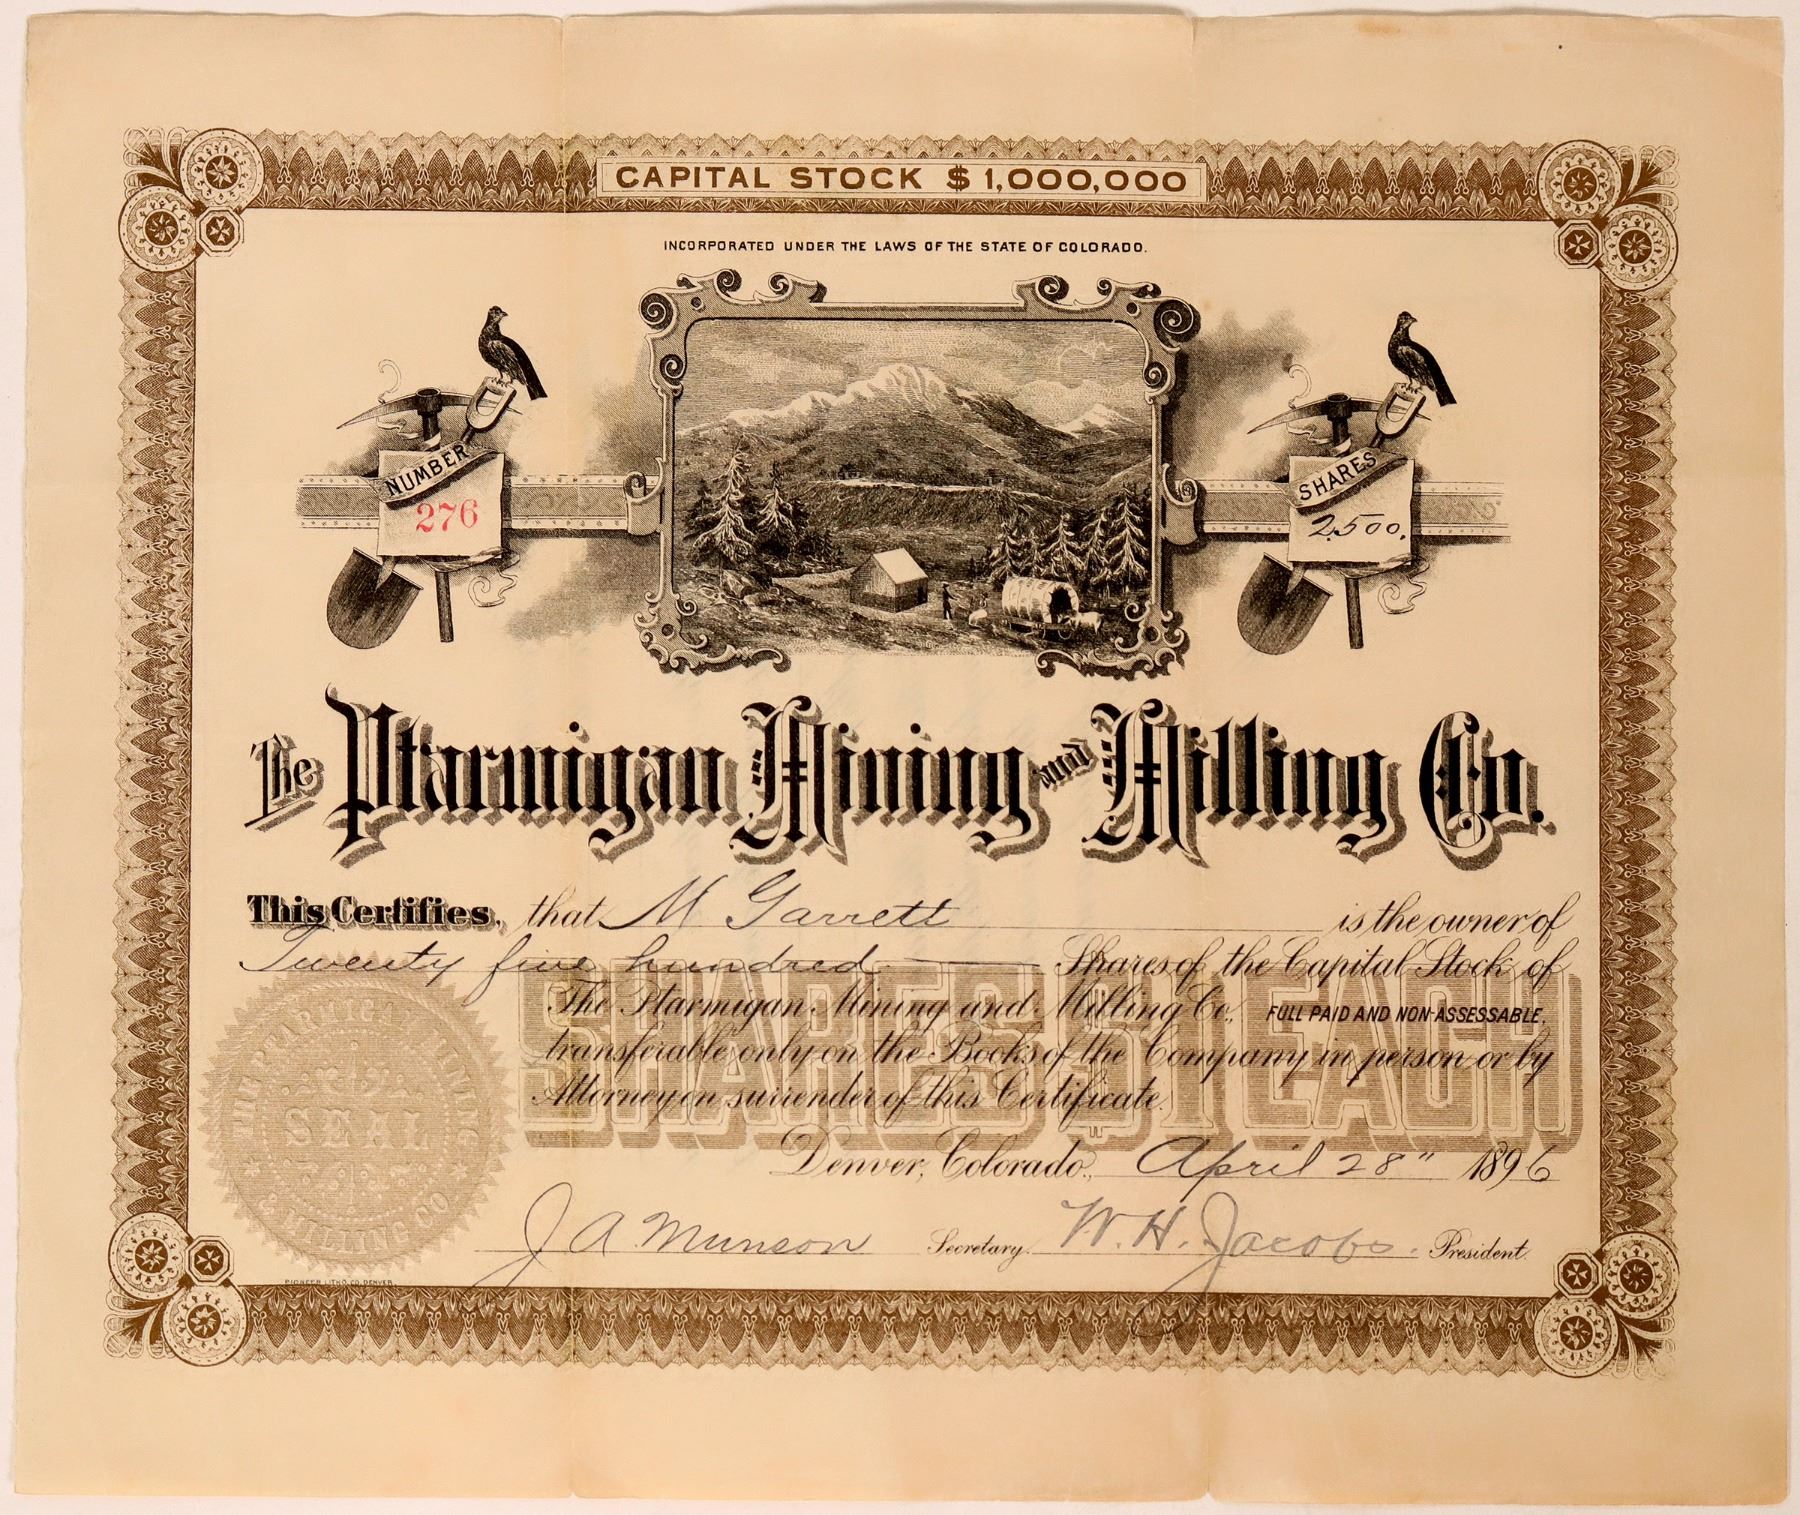 CAPITAL STOCK $1,000,000
INCORPORATED UNDER THE LAWS OF THE STATE OF COLORADO.
NUMBER
276
SHARES
2,500.
The Ptarmigan Mining and Milling Co.
This Certifies, that M Garrett is the owner of
Twenty five hundred Shares of the Capital Stock of
The Ptarmigan Mining and Milling Co., FULL PAID AND NON-ASSESSABLE,
transferable only on the Books of the Company in person or by
Attorney on surrender of this Certificate.
SHARES $1 EACH
Denver, Colorado, April 28" 1896
J A Munson Secretary. W. H. Jacobs. President.
THE PTARMIGAN MINING
SEAL
& MILLING CO
PIONEER LITHO. CO. DENVER.